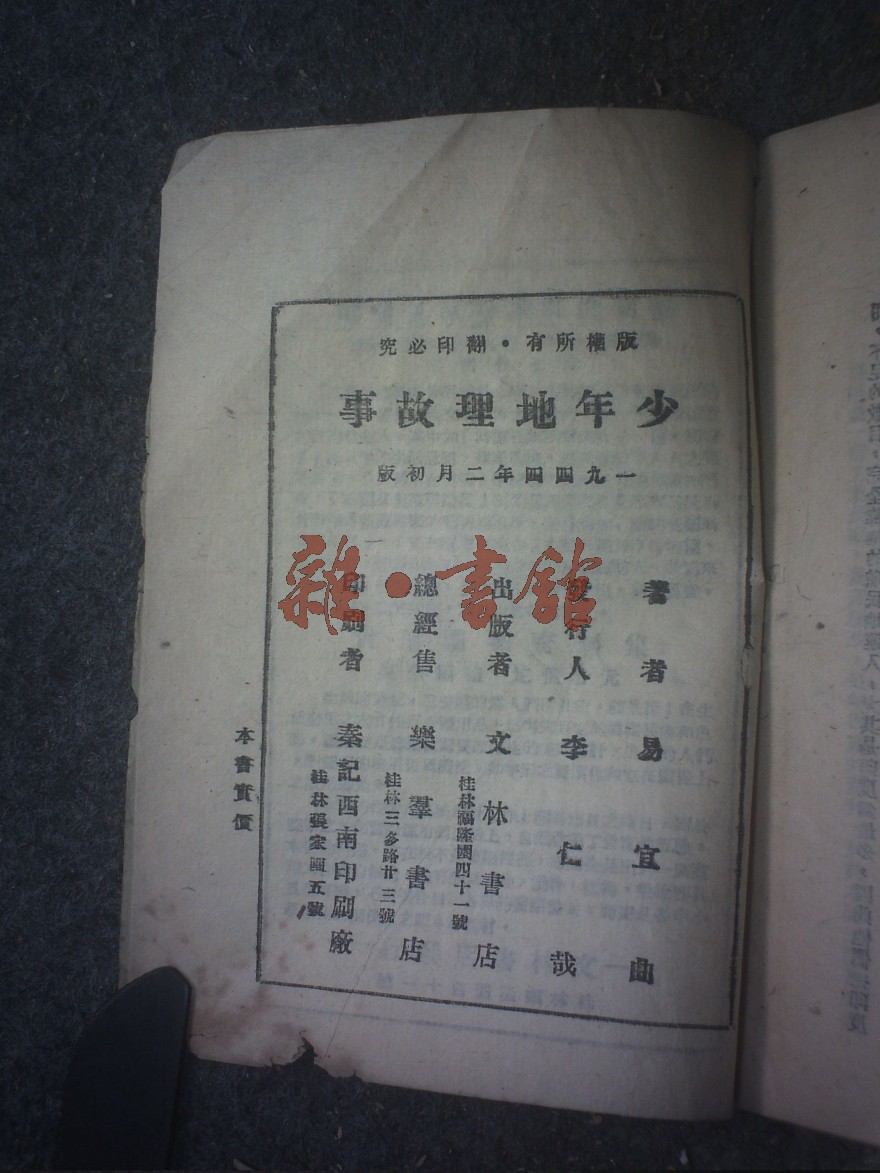 版權所有·翻印必究
少年地理故事
一九四四年二月初版
著者 易宜曲
發行人 李仁哉
出版者 文林書店
桂林福隆園四十一號
總經售 樂羣書店
桂林三多路廿三號
印刷者 秦記西南印刷廠
桂林張家園五號
本書實價
雜·書館